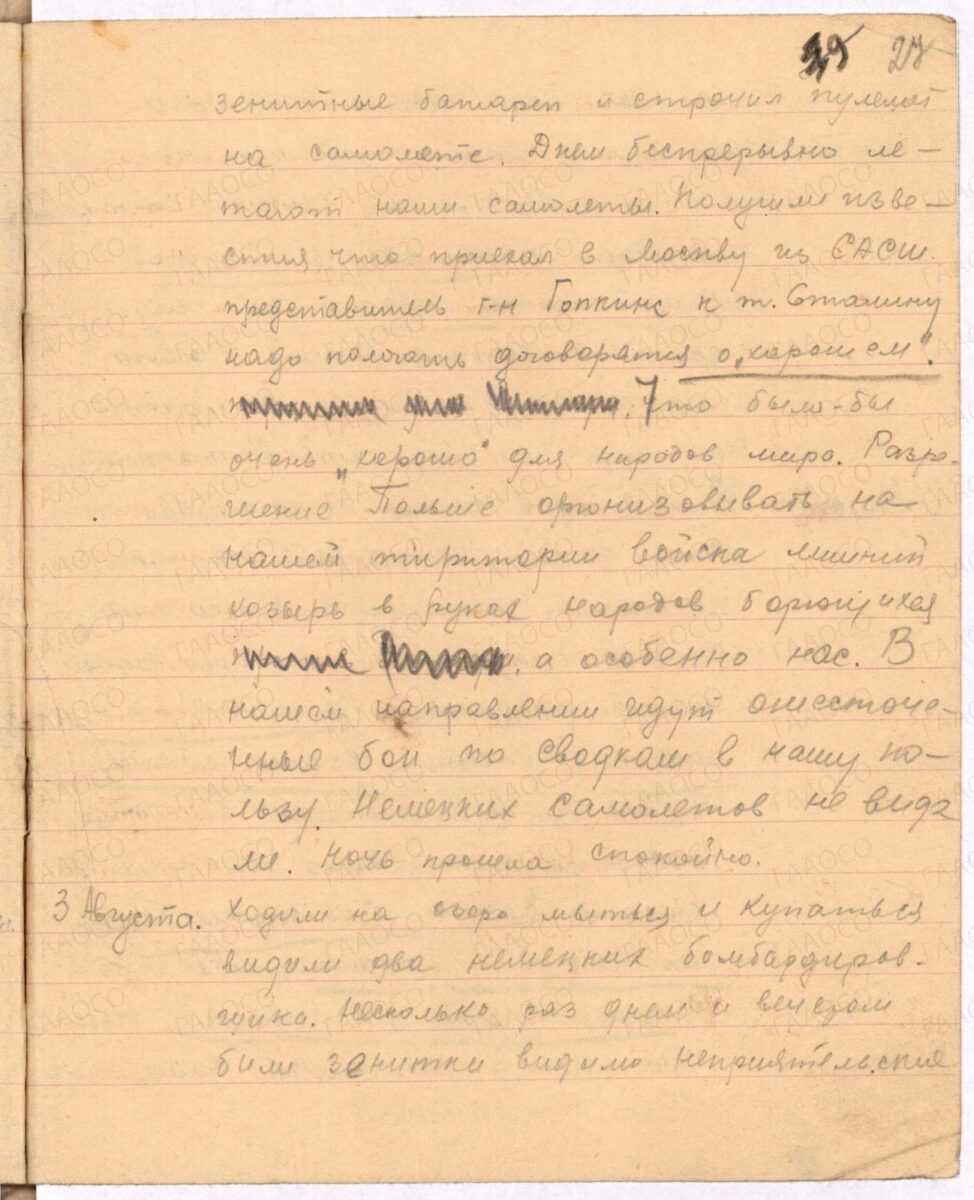 27
зенитные батареи и строчил пулемет
на самолете. Днем беспрерывно ле-
тают наши самолеты. Получили изве-
стия, что приехал в Москву из САСШ
представитель г-н Гопкинс к т. Сталину
надо пологать договарятся о „хорошем".
Что было-бы
очень „хорошо" для народов мира. Разре-
шение Польше организовывать на
нашей тиритории войска лишний
козырь в руках народов борющихся
а особенно нас. В
нашем направлении идут ожесточе-
нные бои по сводкам в нашу по-
льзу. Немецких самолетов не виде
ли. Ночь прошла спокойно.
3 Августа. Ходили на озеро мыться и купаться
видили два немецких бомбардиров-
щика. Несколько раз днем и вечером
били зенитки видимо неприятельские